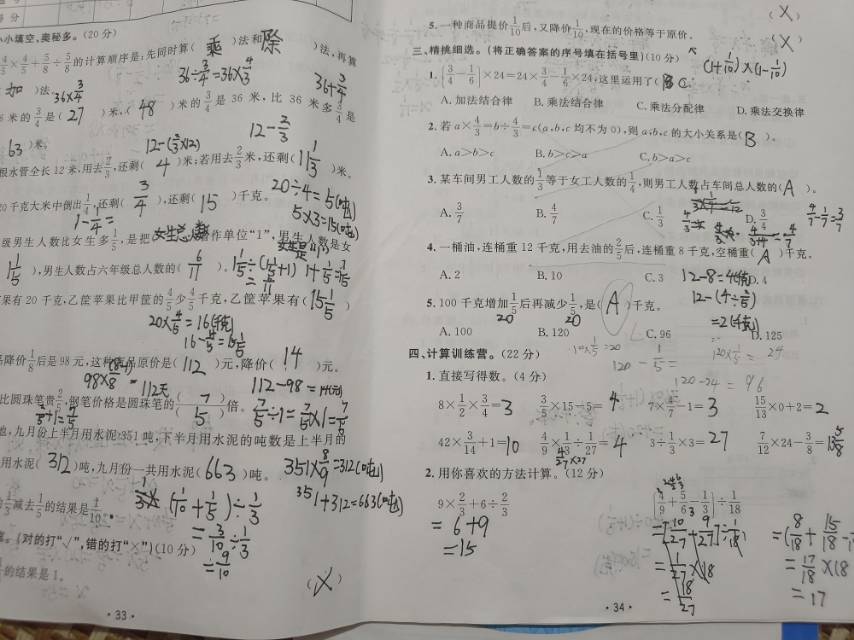 小填空,奥秘多。(20分)
4/5×4/5+5/8÷5/8的计算顺序是:先同时算(乘)法和(除)法,再算
(加)法。
36÷3/4=36×4/3
36+3/4
36×3/4
米的3/4是(27)米,(48)米的3/4是36米,比36米多3/4是
(63)米。
12-(2/3×12)
12-2/3
根水管全长12米,用去2/3,还剩(4)米;若用去2/3米,还剩(11 1/3)米。
20÷4=5(吨)
5×3=15(吨)
20千克大米中倒出1/4,还剩(3/4),还剩(15)千克。
1-1/4=
级男生人数比女生多1/5,是把(女生总人数)看作单位“1”,男生人数是女
(1 1/5),男生人数占六年级总人数的(6/11)。
1 1/5÷(1 1/5+1)
=6/11
果有20千克,乙筐苹果比甲筐的4/5少4/5千克,乙筐苹果有(15 1/5)
20×4/5=16(千克)
16-4/5=15 1/5
品降价1/8后是98元,这种商品原价是(112)元,降价(14)元。
112-98=14(元)
比圆珠笔贵2/5,钢笔价格是圆珠笔的(7/5)倍。
7/5÷1=7/5×1=7/5
地,九月份上半月用水泥351吨,下半月用水泥的吨数是上半月的
用水泥(312)吨,九月份一共用水泥(663)吨。
351×8/9=312(吨)
351+312=663(吨)
减去1/5的结果是1/10
(1/10+1/5)÷1/3
=3/10÷1/3
=9/10
(对的打“√”,错的打“×”)(10分)
的结果是1。
(×)
·33·
(×)
5.一种商品提价1/10后,又降价1/10,现在的价格等于原价。
(×)
三、精挑细选。(将正确答案的序号填在括号里)(10分)
(1+1/10)×(1-1/10)
1.[3/4-1/6]×24=24×3/4-1/6×24,这里运用了(C
A.加法结合律 B.乘法结合律 C.乘法分配律 D.乘法交换律
2.若a×4/3=b÷4/3=c(a,b,c均不为0),则a,b,c的大小关系是(B)。
A.a>b>c B.b>c>a C.b>a>c
3.某车间男工人数的1/3等于女工人数的1/4,则男工人数占车间总人数的(A)。
A.3/7 B.4/7 C.1/3 D.3/4
4/7-1=3/7
4.一桶油,连桶重12千克,用去油的2/5后,连桶重8千克,空桶重(A)千克。
A.2 B.10 C.3 D.4
12-8=4(千克)
12-(4÷2/5)
=2(千克)
5.100千克增加1/5后再减少1/5,是(A)千克。
20 20
A.100 B.120 C.96 D.125
100×1/5=20
120-1/5=
120×1/5=24
120-24=96
四、计算训练营。(22分)
1.直接写得数。(4分)
8×1/2×3/4=3 3/5×15-5=4 7×4/7-1=3 15/13×0+2=2
42×3/14+1=10 4/9×1/3÷1/27=4 3÷1/3×3=27 7/12×24-3/8=13 5/8
4/27×27
2.用你喜欢的方法计算。(12分)
9×2/3+6÷2/3
=6+9
=15
[3/9+5/6-1/3]÷1/18
=1/27×18
=18/27
=(8/18+15/18-
=17/18×18
=17
·34·